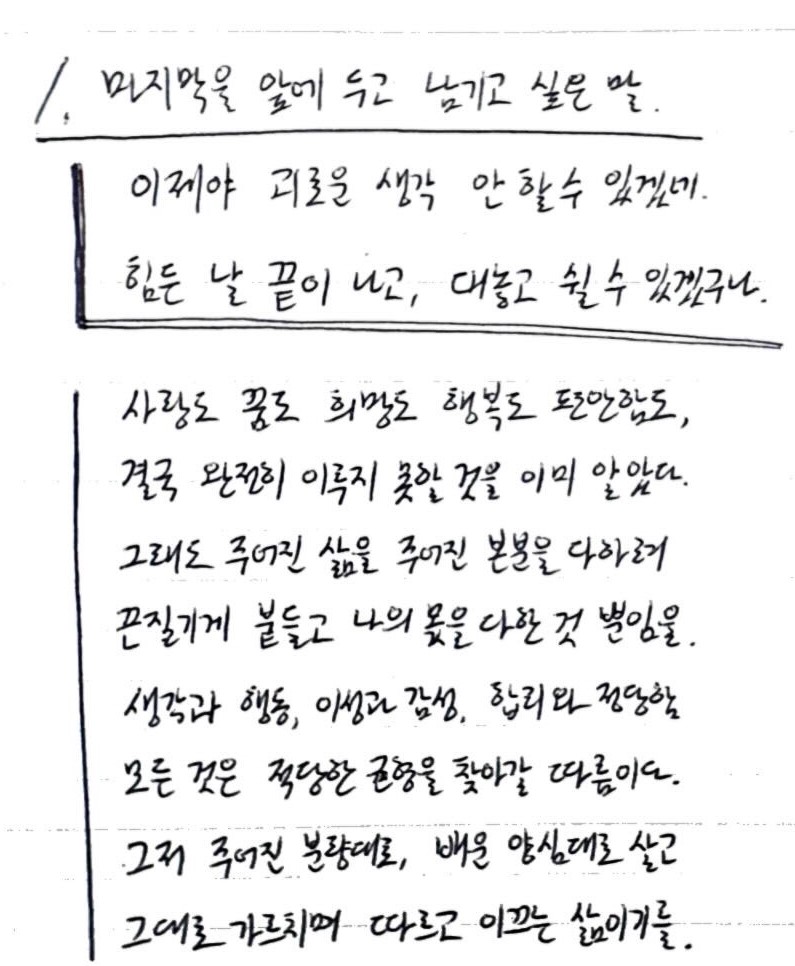 1. 마지막을 앞에 두고 남기고 싶은 말.
이제야 괴로운 생각 안 할 수 있겠네.
힘든 날 끝이 나고, 대놓고 쉴 수 있겠구나.
사랑도 꿈도 희망도 행복도 편안함도,
결국 완전히 이루지 못할 것을 이미 알았다.
그래도 주어진 삶을 주어진 본분을 다하려
끈질기게 붙들고 나의 몫을 다한 것 뿐임을.
생각과 행동, 이성과 감성, 합리와 정당함
모든 것은 적당한 균형을 찾아갈 따름이다.
그저 주어진 분량대로, 배운 양심대로 살고
그대로 가르치며 따르고 이끄는 삶이기를.